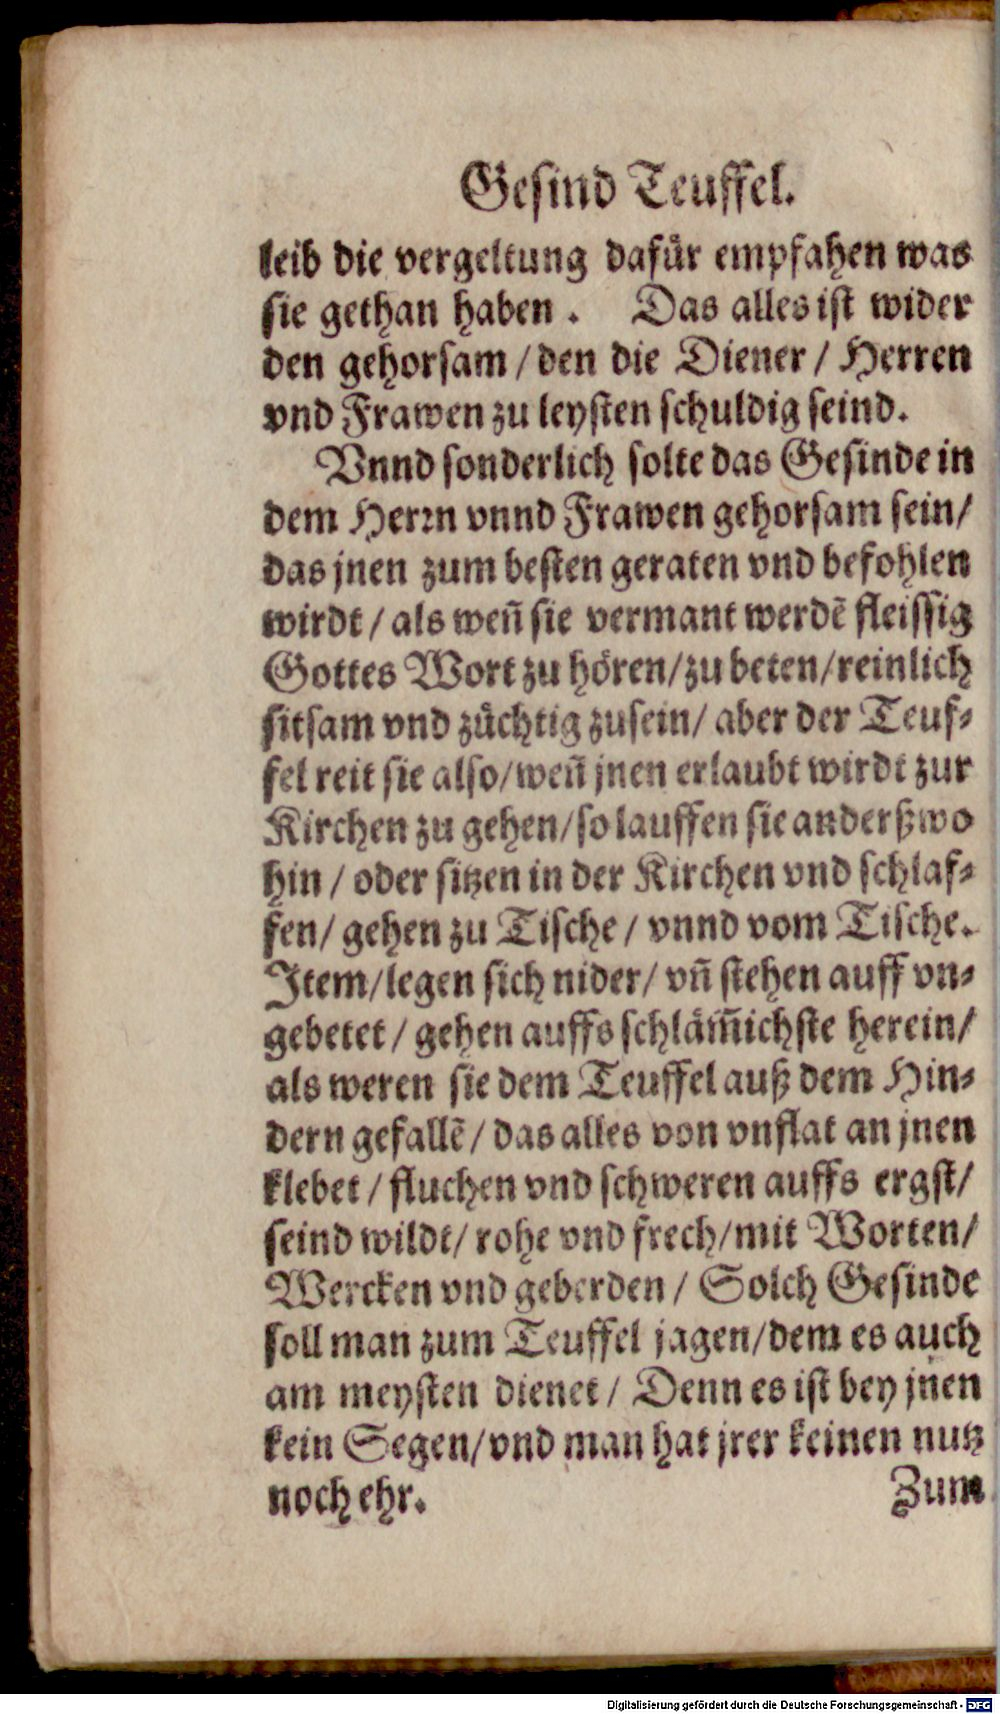 Gesind Teuffel.
leib die vergeltung dafür empfahen was
sie gethan haben. Das alles ist wider
den gehorsam / den die Diener / Herren
vnd Frawen zu leysten schuldig seind.
Vnnd sonderlich solte das Gesinde in
dem Herrn vnnd Frawen gehorsam sein/
das jnen zum besten geraten vnd befohlen
wirdt / als weñ sie vermant werdẽ fleissig
Gottes Wort zu hören/zu beten/reinlich
sitsam vnd züchtig zusein/ aber der Teuf⸗
fel reit sie also/weñ jnen erlaubt wirdt zur
Kirchen zu gehen/so lauffen sie anderßwo
hin / oder sitzen in der Kirchen vnd schlaf⸗
fen/ gehen zu Tische / vnnd vom Tische.
Item/legen sich nider/ vñ stehen auff vn⸗
gebetet / gehen auffs schläm̃ichste herein/
als weren sie dem Teuffel auß dem Hin⸗
dern gefallẽ / das alles von vnflat an jnen
klebet / fluchen vnd schweren auffs ergst/
seind wildt/ rohe vnd frech/mit Worten/
Wercken vnd geberden / Solch Gesinde
soll man zum Teuffel jagen/dem es auch
am meysten dienet / Denn es ist bey jnen
kein Segen/vnd man hat jrer keinen nutz
noch ehr. Zum
Digitalisierung gefördert durch die Deutsche Forschungsgemeinschaft - DFG